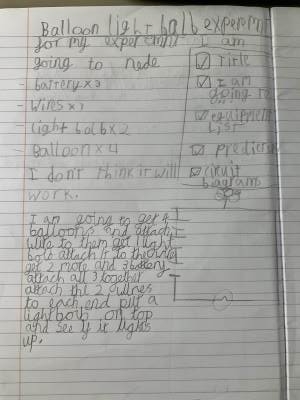 Balloon light bolb experemnt
for my experemnt I am
going to nede
- battery x 3
- Wires x 1
- light bolb x 2
- Balloon x 4
I don't think it will
work.
☑ Title
☑ I am
going to
☑ equipment
list
☑ predicting
☑ ciruit
diagram
I am going to get 4
balloons and attach
wire to them get light
bolb attach it to the
get 2 more and 3 battery
attach all 3 togethir
attach the 2
to each end put a
light bolb on top
and see if it lights
up.